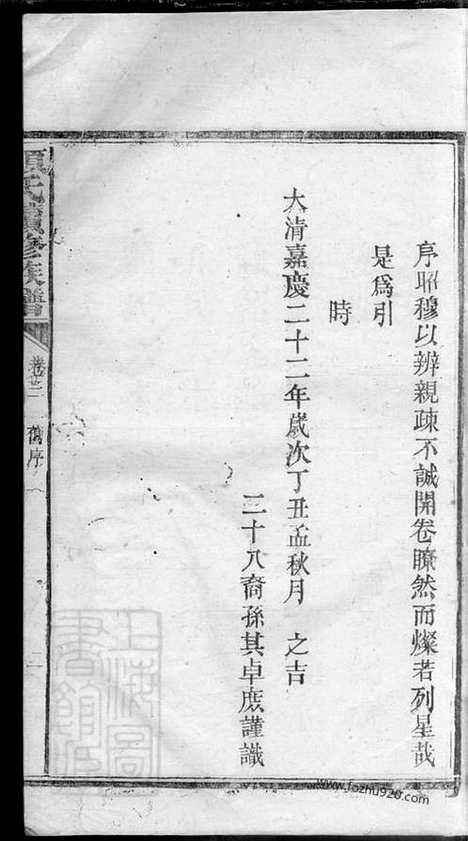 序昭穆以辨親疎不誠開卷瞭然而燦若列星哉
是爲引
時
大清嘉慶二十二年歲次丁丑孟秋月 之吉
三十八裔孫其卓庶謹識
氏續修族譜
舊序
二
上海圖書館
www.fozhu920.com